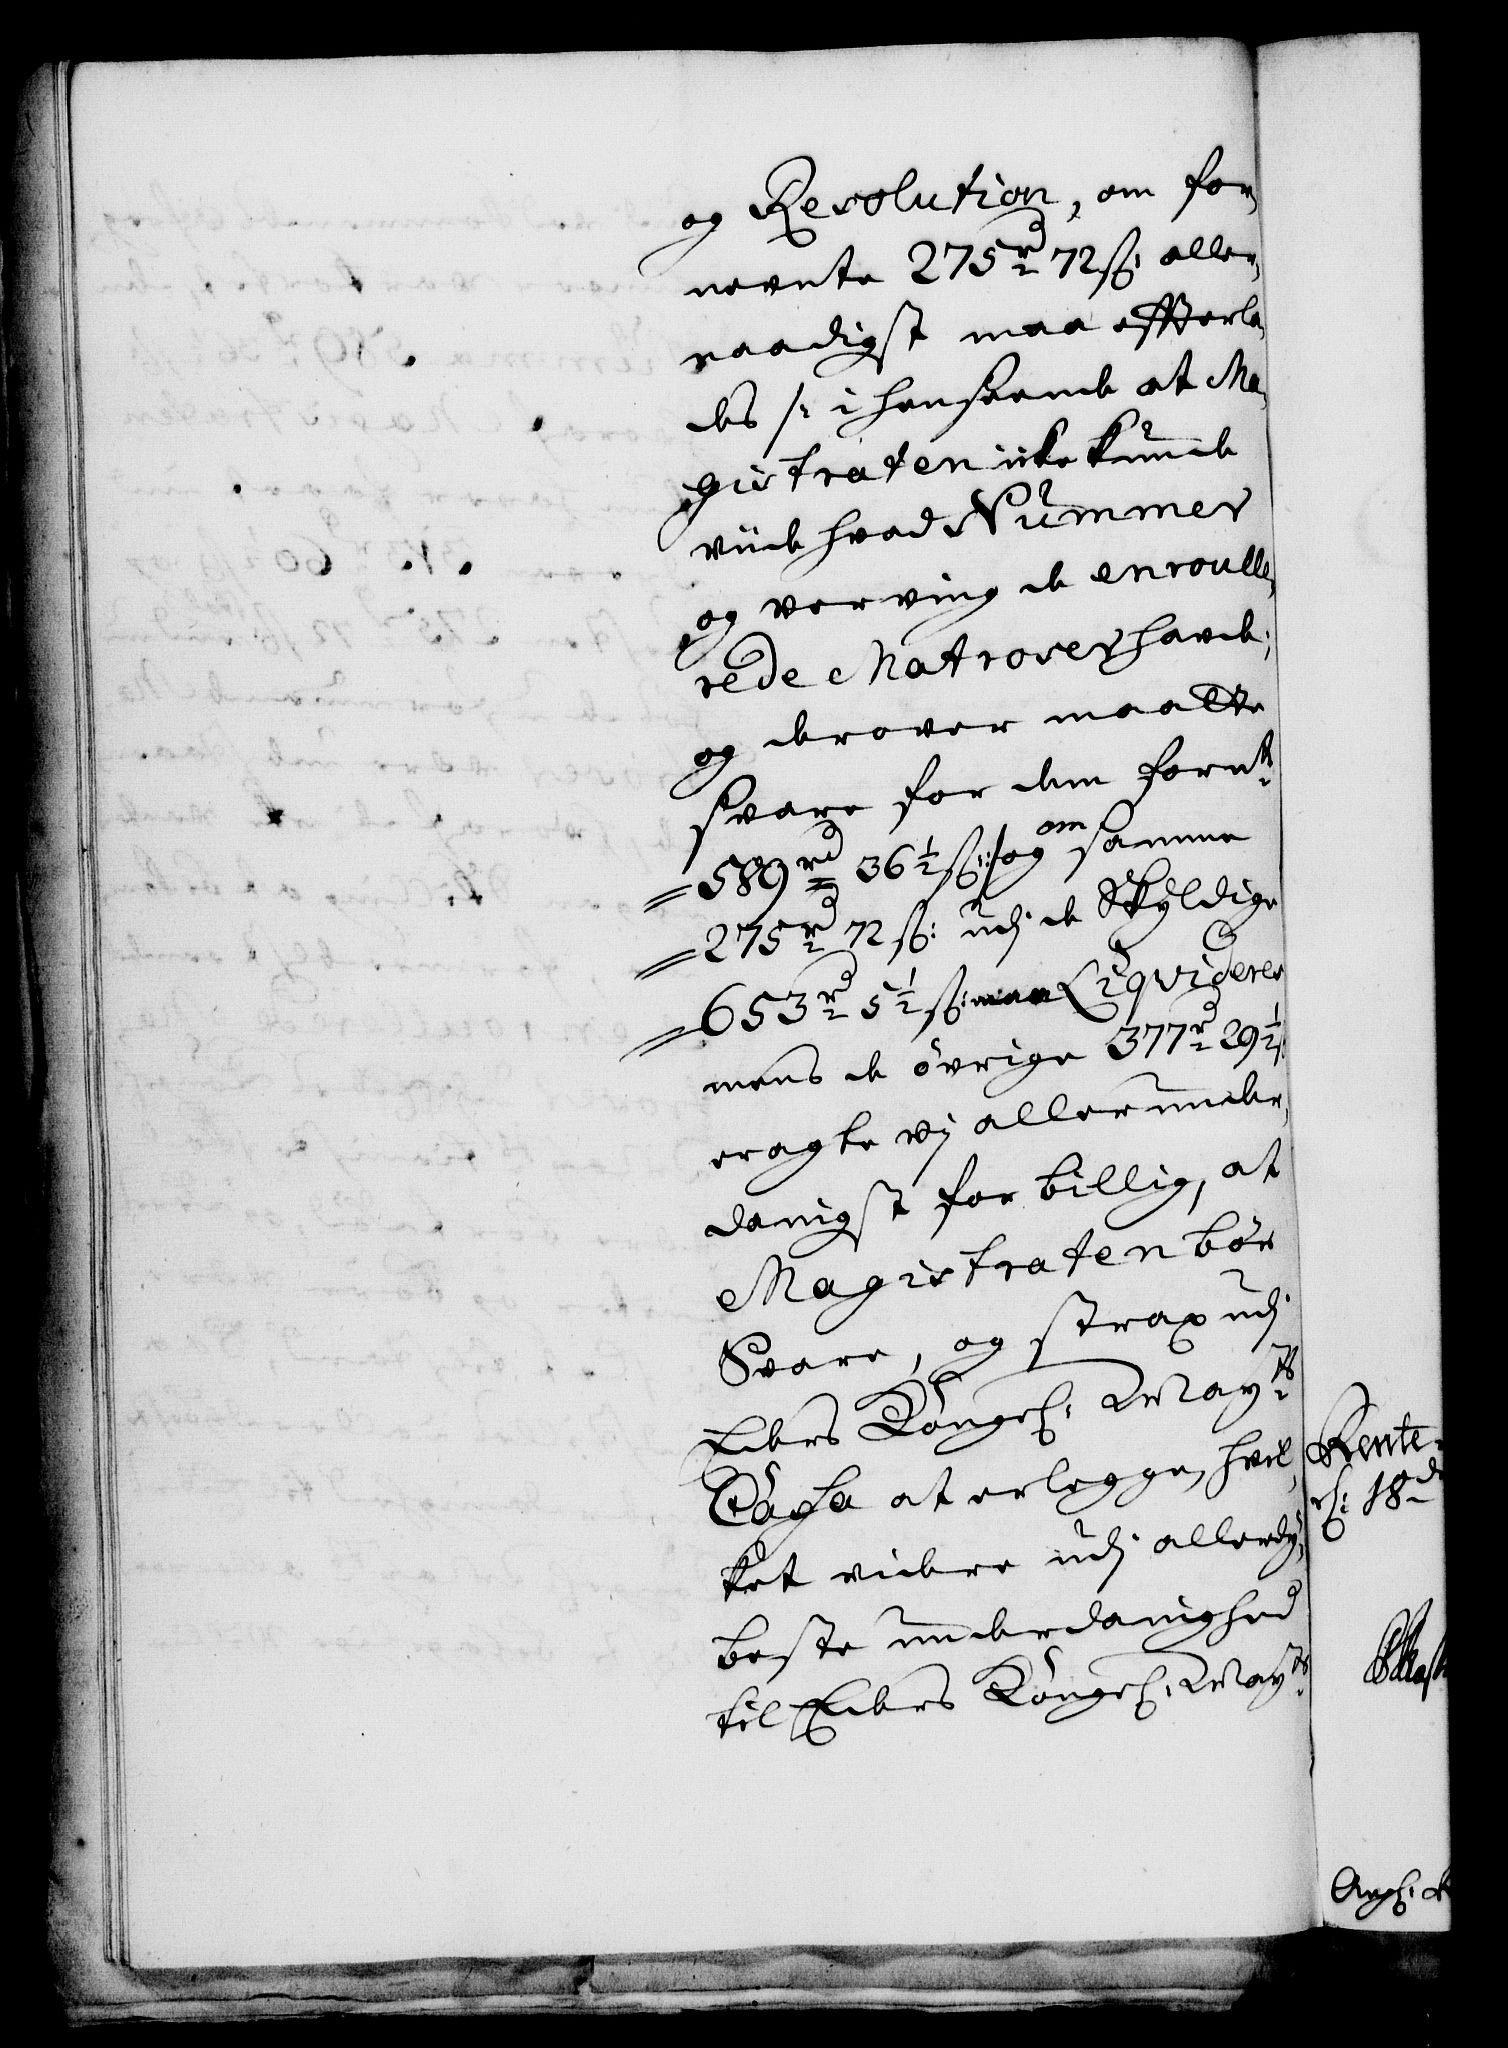 og Resolution, om for,
nevnte 275 rd 72 ß: aller,
naadigst maa effterla,
des /: i henseende at Ma,
gistraten icke kunde
viide hvad Nummer
og verving de enroulle,
rede Matroser havde,
og derover maatte
svare for dem fornte
589 rd 36½ ß: :/ og om samme
275 rd 72 ß: udj de Skyldige
653 rd 5½ ß: maa Liqvideres
mens de øvrige 377 rd 29½ ß
eragte vj allerunder,
danigst for billig, at
Magistraten bør
Svare, og strax udj
Eders Kongel: Mayts
Cassa at erlegge, hvil,
ket videre udj allerdy,
beste underdanighed
til Eders Kongel: Mayts
Rente-
18